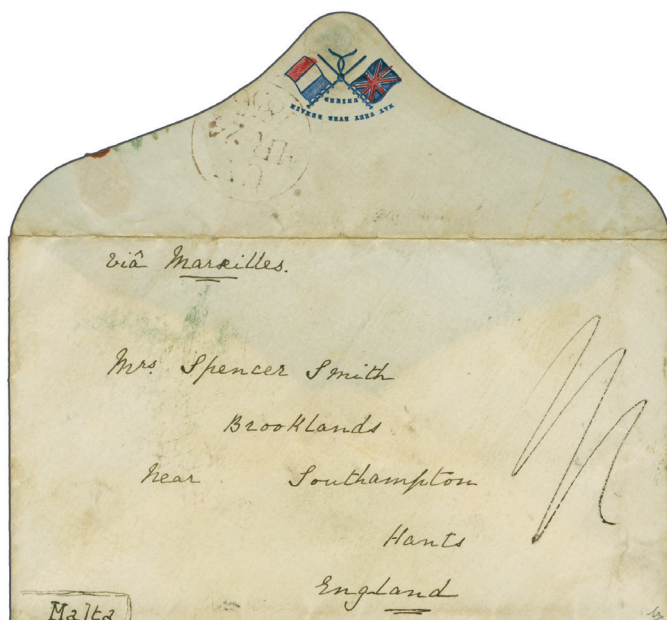 viâ Marseilles.
Mrs. Spencer Smith
Brooklands
near Southampton
Hants
England
Malta